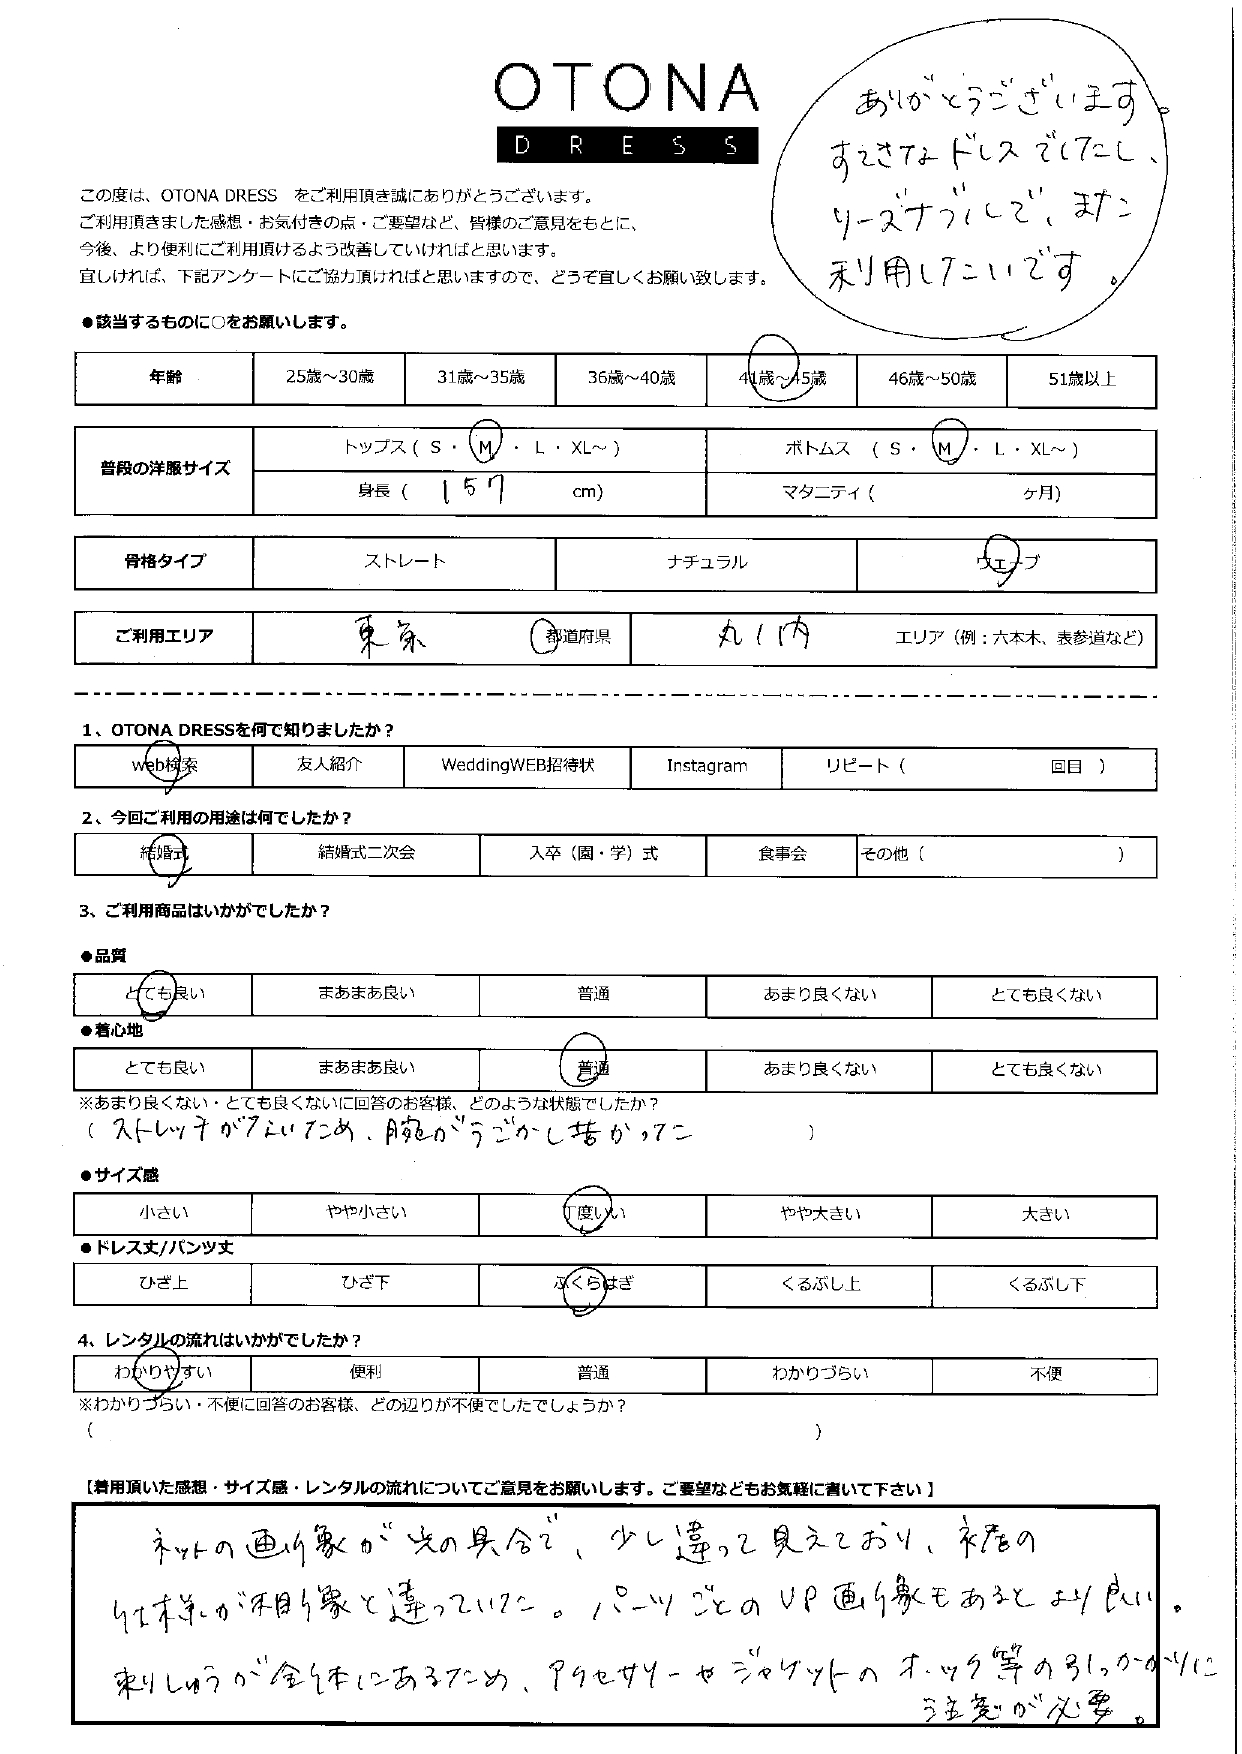 OTONA
DRESS
ありがとうございます。
すてきなドレスでしたし、
リーズナブルで、また
利用したいです。
この度は、OTONA DRESS　をご利用頂き誠にありがとうございます。
ご利用頂きました感想・お気付きの点・ご要望など、皆様のご意見をもとに、
今後、より便利にご利用頂けるよう改善していければと思います。
宜しければ、下記アンケートにご協力頂ければと思いますので、どうぞ宜しくお願い致します。
●該当するものに○をお願いします。
年齢 25歳～30歳 31歳～35歳 36歳～40歳 41歳～45歳 46歳～50歳 51歳以上
普段の洋服サイズ トップス（ S ・ M ・ L ・ XL～ ） ボトムス （ S ・ M ・ L ・ XL～ ）
身長（ 157 cm） マタニティ（ ヶ月）
骨格タイプ ストレート ナチュラル ウェーブ
ご利用エリア 東京 都道府県 丸ノ内 エリア（例：六本木、表参道など）
1、OTONA DRESSを何で知りましたか？
web検索 友人紹介 WeddingWEB招待状 Instagram リピート（ 回目 ）
2、今回ご利用の用途は何でしたか？
結婚式 結婚式二次会 入卒（園・学）式 食事会 その他（ ）
3、ご利用商品はいかがでしたか？
●品質
とても良い まあまあ良い 普通 あまり良くない とても良くない
●着心地
とても良い まあまあ良い 普通 あまり良くない とても良くない
※あまり良くない・とても良くないに回答のお客様、どのような状態でしたか？
（ ストレッチがないため、腕がうごかし描かった ）
●サイズ感
小さい やや小さい 丁度いい やや大きい 大きい
●ドレス丈/パンツ丈
ひざ上 ひざ下 ふくらはぎ くるぶし上 くるぶし下
4、レンタルの流れはいかがでしたか？
わかりやすい 便利 普通 わかりづらい 不便
※わかりづらい・不便に回答のお客様、どの辺りが不便でしたでしょうか？
（ ）
【着用頂いた感想・サイズ感・レンタルの流れについてご意見をお願いします。ご要望などもお気軽に書いて下さい】
ネットの画像が光の具合で、少し違って見えており、の
仕様が想像と違っていた。パーツごとのUP画像もあるとより良い。
刺しゅうが全体にあるため、アクセサリーやジャケットのホック等の引っかかりに
注意が必要。